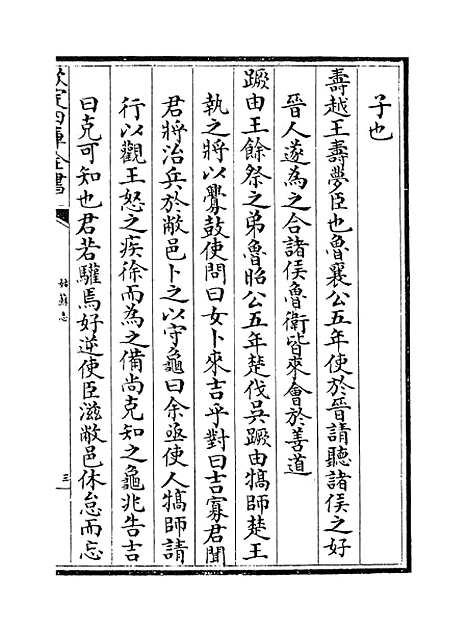 子也
壽越王壽夢臣也魯襄公五年使於晉請聽諸侯之好
晉人遂為之合諸侯魯衛皆來會於善道
蹶由王餘祭之弟魯昭公五年楚伐吳蹶由犒師楚王
執之將以釁鼓使問曰女卜來吉乎對曰吉寡君聞
君將治兵於敝邑卜之以守龜曰余亟使人犒師請
行以觀王怒之疾徐而為之備尚克知之龜兆告吉
曰克可知也君若驩焉好逆使臣滋敝邑休怠而忘
欽定四庫全書
姑蘇志
三